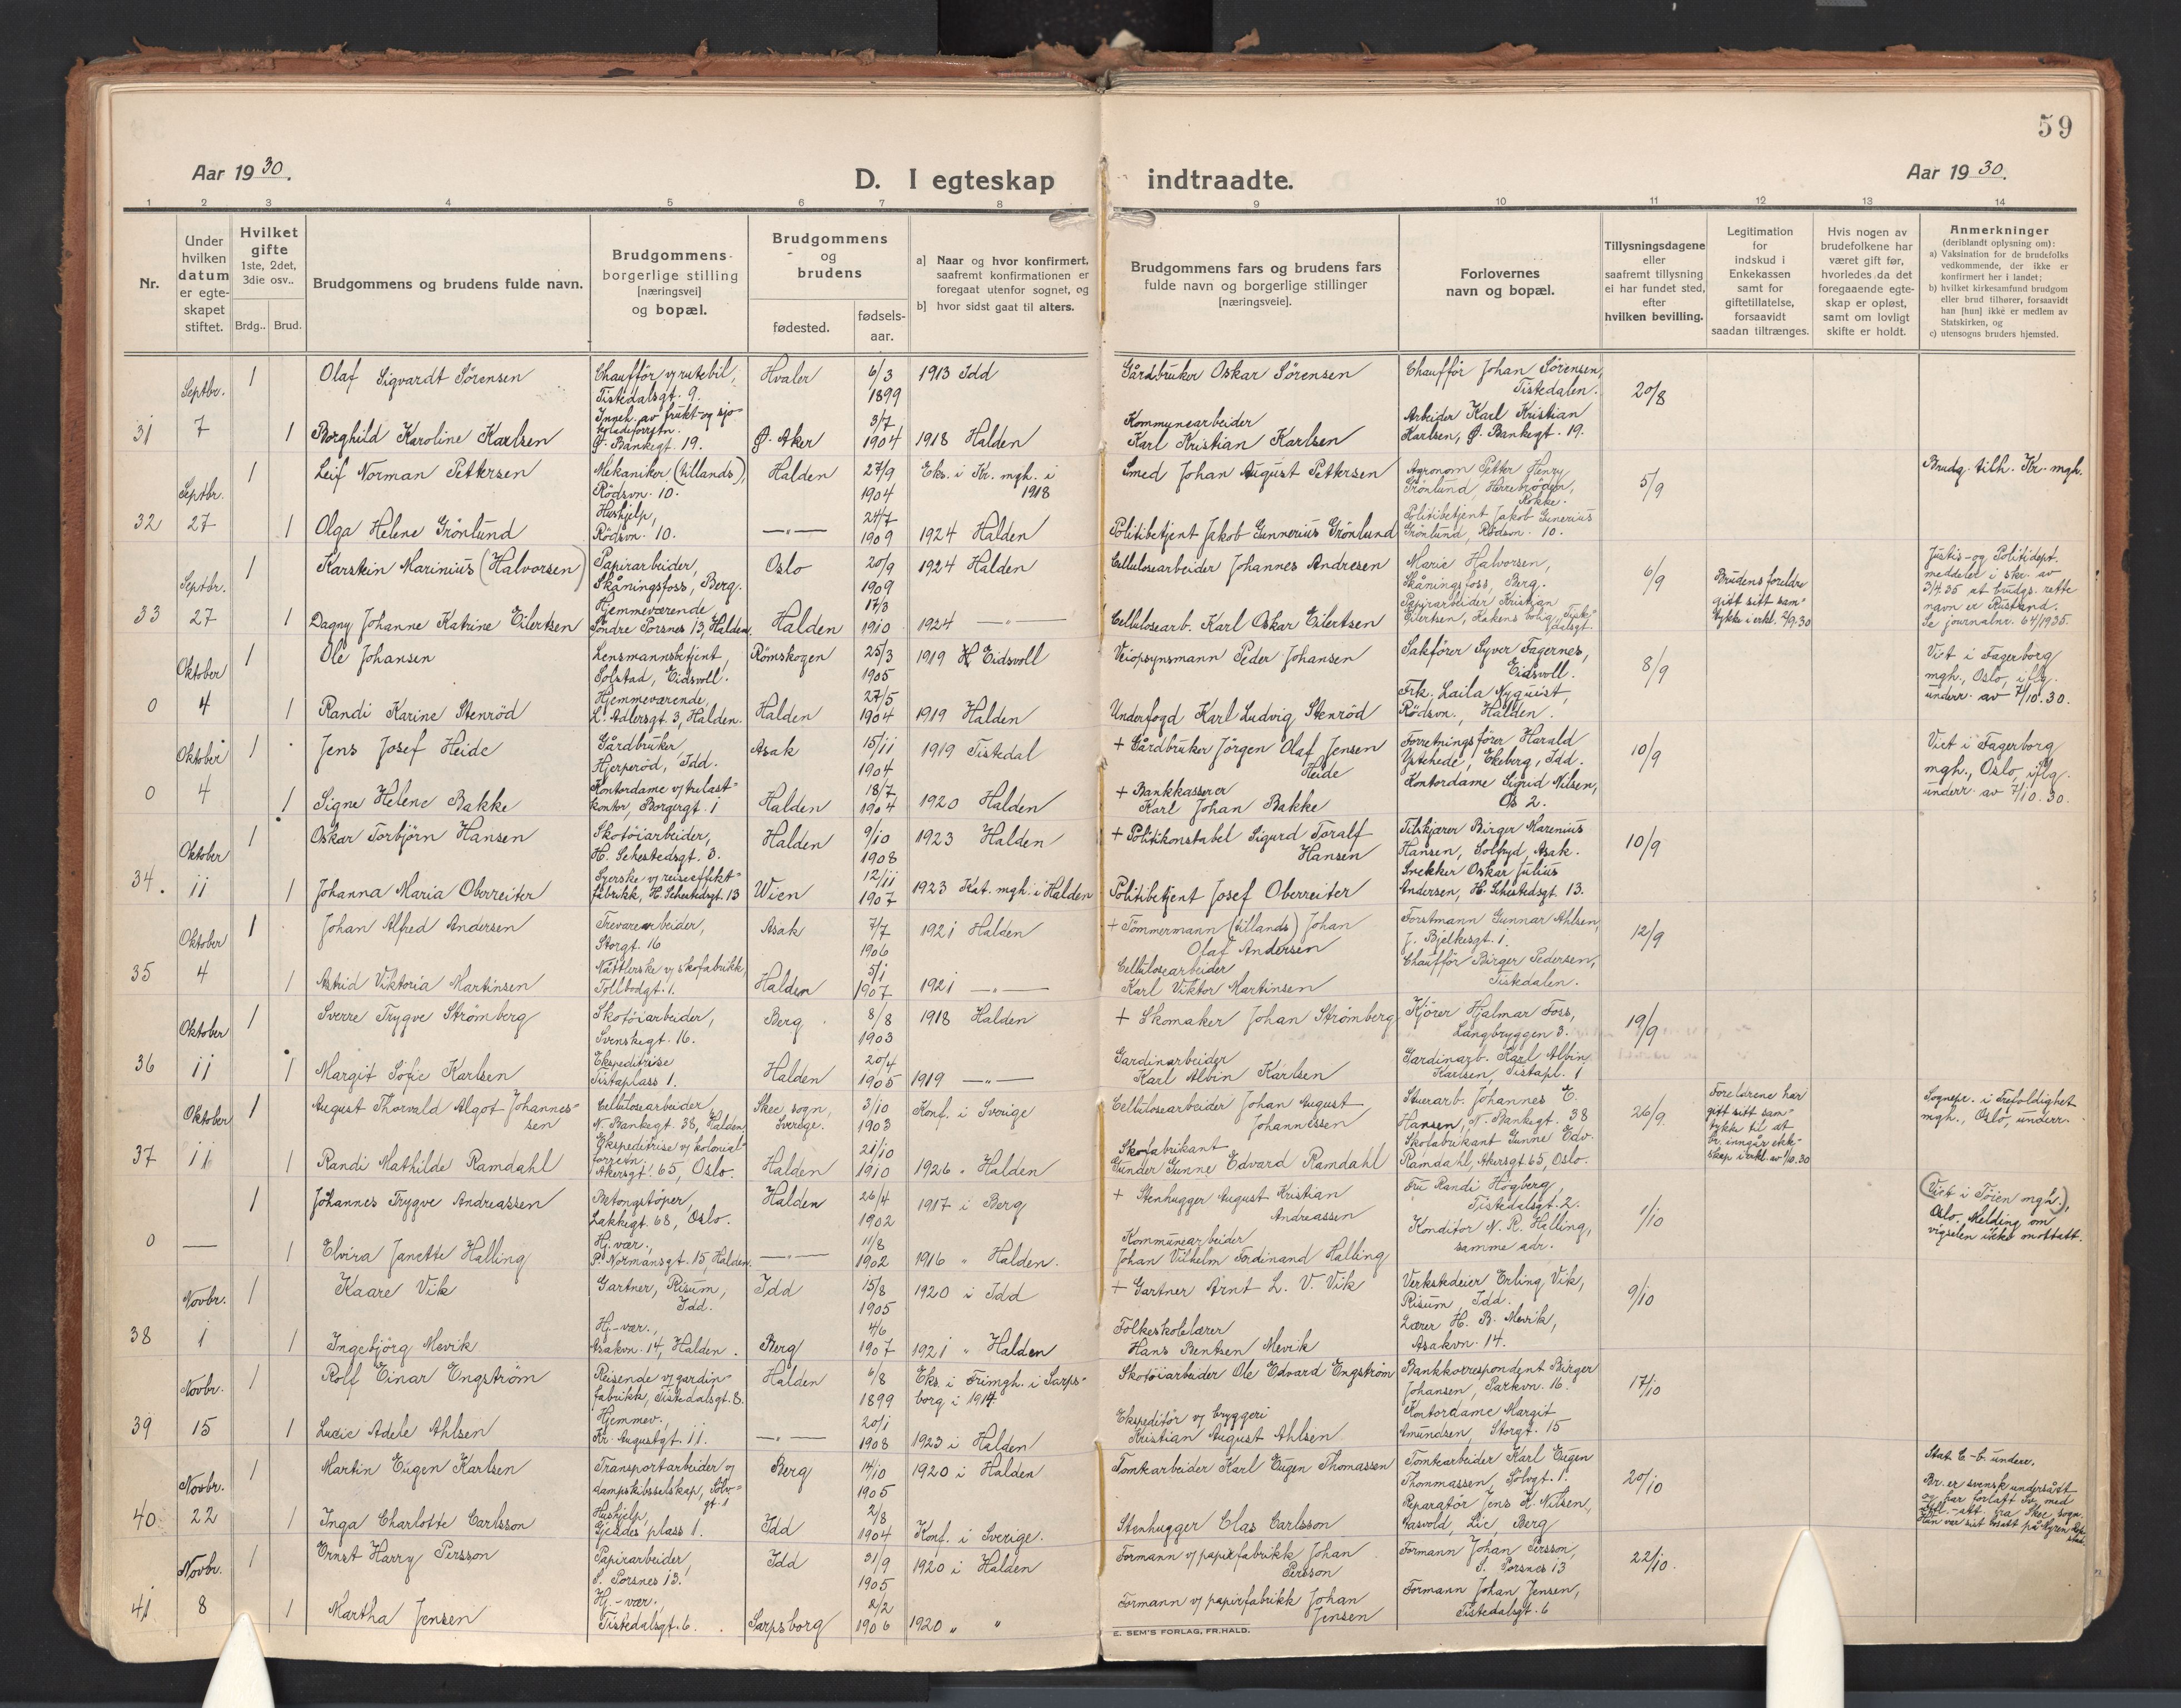 59
Aar 1930.
D. I egteskap indtraadte.
Aar 1930.
1 2 3 4 5 6 7 8 9 10 11 12 13 14
Nr.
Under hvilken datum er egte-skapet stiftet.
Hvilket gifte 1ste, 2det, 3die osv..
Brdg.. Brud.
Brudgommens og brudens fulde navn.
Brudgommens borgerlige stilling [næringsvei] og bopæl.
Brudgommens og brudens
fødested.
fødsels-aar.
a] Naar og hvor konfirmert, saafremt konfirmationen er foregaat utenfor sognet, og
b] hvor sidst gaat til alters.
Brudgommens fars og brudens fars fulde navn og borgerlige stillinger [næringsveie].
Forlovernes navn og bopæl.
Tillysningsdagene eller saafremt tillysning ei har fundet sted, efter hvilken bevilling.
Legitimation for indskud i Enkekassen samt for giftetillatelse, forsaavidt saadan tiltrænges.
Hvis nogen av brudefolkene har været gift før, hvorledes da det foregaaende egte-skap er opløst, samt om lovligt skifte er holdt.
Anmerkninger (deriblandt oplysning om):
a) Vaksination for de brudefolks vedkommende, der ikke er konfirmert her i landet;
b) hvilket kirkesamfund brudgom eller brud tilhører, forsaavidt han [hun] ikke er medlem av Statskirken, og
c) utensogns bruders hjemsted.
Septbr. 1 Olaf Sigvardt Sörensen Chaufför v/ rutebil, Tistedalsgt. 9. Hvaler 6/3 1899 1913 Idd Gårdbruker Oskar Sörensen Chaufför Johan Sörensen, Tistedalen. 20/8
31 7 1 Borghild Karoline Karlsen Inneh. av frukt- og sjo- Ø. Bankegt. 19. Ø. Aker 3/7 1904 1918 Halden Kommunearbeider Karl Kristian Karlsen Arbeider Karl Kristian Karlsen, Ø. Bankegt. 19.
Septbr. 1 Leif Norman Pettersen Mekaniker (tillands), Rödsvn. 10. Halden 27/9 1904 Eks. i Kr. mgh. i 1918 Smed Johan August Pettersen Agronom Petter Henry Grönlund, Herrebröden, Rokke. 5/9 Brudg. tilh. Kr. mgh.
32 27 1 Olga Helene Grönlund Hushjelp, Rödsvn. 10. —„— 24/7 1909 1924 Halden Politibetjent Jakob Gunnerius Grönlund Politibetjent Jakob Gunerius Grönlund, Rödsvn. 10.
Septbr. 1 Karstein Marinius (Halvorsen) Papirarbeider, Skåningsfoss, Berg. Oslo 20/9 1909 1924 Halden Cellulosearbeider Johannes Andresen Marie Halvorsen, Skåningsfoss, Berg. 6/9 Brudens foreldre gitt sitt sam-tykke i erkl. 2/9.30 Justis- og Politidept. meddeler i skr. av 3/4 35 at brudgs. rette navn er Rustand. Se journalnr. 64/1935.
33 27 1 Dagny Johanne Katrine Eilertsen Hjemmeværende, Söndre Porsnes 13, Halden. Halden 17/3 1910 1924 —„— Cellulosearb. Karl Oskar Eilertsen Papirarbeider Kristian Eilertsen,
Oktober 1 Ole Johansen Lensmannsbetjent, Solstad, Eidsvoll. Römskogen 25/3 1905 1919 Eidsvoll Veiopsynsmann Peder Johansen Sakförer Syver Fagernes, Eidsvoll. 8/9 Viet i Fagerborg mgh., Oslo, iflg. underr. av 7/10. 30.
0 4 1 Randi Karine Stenröd Hjemmeværende, L. Adlersgt. 3, Halden. Halden 27/5 1904 1919 Halden Underfogd Karl Ludvig Stenröd Frk. Laila Nyquist, Rödsvn., Halden.
Oktober 1 Jens Josef Heide Gårdbruker Hjerperöd, Idd. Asak 15/11 1904 1919 Tistedal + Gårdbruker Jörgen Olaf Jensen Heide Forretningsförer Harald Ystehede, Ekeberg, Idd. 10/9 Viet i Fagerborg mgh., Oslo, iflg. underr. av 7/10. 30.
0 4 1 Signe Helene Bakke Kontordame v/ trelast-kontor, Borgergt. 1 Halden 18/7 1904 1920 Halden + Bankkasserer Karl Johan Bakke Kontordame Sigrid Nilsen, Os 2.
Oktober 1 Oskar Torbjörn Hansen Skotöiarbeider, H. Sehestedsgt. 3. Halden 9/10 1908 1923 Halden + Politikonstabel Sigurd Toralf Hansen Tilskjærer Birger Marenius Hansen, Solfryd, Asak. 10/9
34. 11 1 Johanna Maria Oberreiter Syerske v/ reiseeffekt-fabrikk, H. Sehestedsgt. 13 Wien 12/11 1907 1923 Kat. mgh. i Halden Politibetjent Josef Oberreiter Snekker Oskar Julius Andersen, H. Sehestedsgt. 13.
Oktober 1 Johan Alfred Andersen Trevarearbeider, Storgt. 16 Asak 7/7 1906 1921 Halden + Tömmermann (tillands) Johan Olaf Andersen Forstmann Gunnar Ahlsen, J. Bjelkesgt. 1. 12/9
35 4 1 Astrid Viktoria Martinsen Nåtlerske v/ skofabrikk, Tollbodgt. 1. Halden 5/1 1907 1921 —„— Cellulosearbeider Karl Viktor Martinsen Chaufför Birger Pedersen, Tistedalen.
Oktober 1 Sverre Trygve Strömberg Skotöiarbeider, Svenskegt. 16. Berg 8/8 1903 1918 Halden + Skomaker Johan Strömberg Kjörer Hjalmar Fors, Langbryggen 3. 19/9
36 11 1 Margit Sofie Karlsen Ekspeditrise Tistaplass 1. Halden 20/4 1905 1919 —„— Gardinarbeider Karl Albin Karlsen Gardinarb. Karl Albin Karlsen, Tistapl. 1
Oktober 1 August Thorvald Algot Johannes-sen Cellulosearbeider, N. Bankegt. 38, Halden Skee sogn, Sverige. 3/10 1903 Konf. i Sverige Cellulosearbeider Johan August Johannessen Stuerarb. Johannes E. Hansen, N. Bankegt. 38 26/9 Foreldrene har gitt sitt sam-tykke til at br. inngår ekte-skap i erkl. av 1/10.30 Sognepr. i Trefoldighet mgh., Oslo, underr.
37 11 1 Randi Mathilde Ramdahl Ekspeditrise v/ kolonial-forretn. Akersgt. 65, Oslo. Halden 21/10 1910 1926 „ Halden Skofabrikant Gunder Gunne Edvard Ramdahl Skofabrikant Gunne Edv. Ramdahl, Akersgt. 65, Oslo.
1 Johannes Trygve Andreassen Betongstöper, Lakkegt. 68, Oslo. Halden 26/4 1902 1917 i Berg + Stenhugger August Kristian Andreassen Fru Randi Högberg, Tistedalsgt. 2. 1/10 (Viet i Töien mgh.), Oslo. Melding om vigselen ikke mottatt.
0 — 1 Elvira Janette Halling Hj. vær., P. Normansgt. 15, Halden. —„— 11/8 1902 1916 „ Halden. Kommunearbeider Johan Vilhelm Ferdinand Halling Konditor N. R. Halling, samme adr.
Novbr. 1 Kaare Vik Gartner, Risum, Idd. Idd 15/8 1905 1920 i Idd + Gartner Arnt L. V. Vik Verkstedeier Erling Vik, Risum Idd. 9/10
38 1 1 Ingebjörg Mevik Hj.-vær., Asakvn. 14, Halden. Berg 4/6 1907 1921 „ Halden Folkeskolelærer Hans Bentsen Mevik Lærer H. B. Mevik, Asakvn. 14.
Novbr. 1 Rolf Einar Engström Reisende v/ gardin-fabrikk, Tistedalsgt. 8. Halden 6/8 1899 Eks. i Frimgh. i Sarps-borg i 1914 Skotöiarbeider Ole Edvard Engström Bankkorrespondent Birger Johansen, Parkvn. 16. 17/10
39 15 1 Lucie Adele Ahlsen Hjemmev., Kr. Augustgt. 11. —„— 20/1 1908 1923 i Halden Ekspeditör v/ bryggeri Kristian August Ahlsen Kontordame Margit Amundsen, Storgt. 15
Novbr. 1 Martin Eugen Karlsen Transportarbeider v/ dampskibsselskap, Sölv-gt. 1 Berg 14/10 1905 1920 i Halden Tomtearbeider Karl Eugen Thomassen Tomtearbeider Karl Eugen Thommassen, Sölvgt. 1. 20/10 Stat. C-b. underr.
40 22 1 Inga Charlotte Carlsson Hushjelp, Gjeddes plass 1. Idd 2/8 1904 Konf. i Sverige. Stenhugger Clas Carlsson Reparatör Jens K. Nilsen, Lie, Berg Br. er svensk undersått og har forlatt Sv. med fra Skee sogn.
Novbr. 1 Ernst Harry Persson Papirarbeider, S. Porsnes 13. Idd 31/9 1905 1920 i Halden Formann v/ papirfabrikk Johan Persson Formann Johan Persson, S. Porsnes 13 22/10.
41 8 1 Martha Jensen Hj.-vær., Tistedalsgt. 6. Sarpsborg 2/2 1906 1920 „ „ Formann v/ papirfabrikk Johan Jensen Formann Johan Jensen, Tistedalsgt. 6
E. SEM'S FORLAG, FR.HALD.